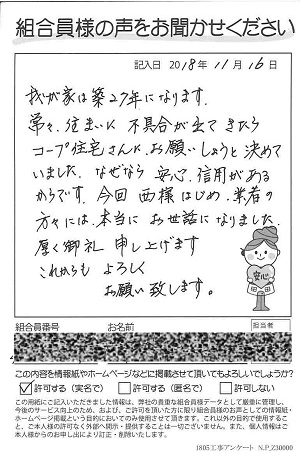 組合員様の声をお聞かせください
記入日 2018年 11月 16日
我が家は築27年になります。
常々、住まいに 不具合が出てきたら
コープ住宅さんに、お願いしようと決めて
いました。なぜなら 安心、信用がある
からです。今回 西様はじめ、業者の
方々には、本当に お世話になりました。
厚く御礼 申し上げます
これからも よろしく
お願い致します。
安心
組合員番号 お名前 担当者
この内容を情報紙やホームページなどに掲載させて頂いてもよろしいでしょうか?
☑許可する(実名で) □許可する(匿名で) □許可しない
この用紙にご記入いただきました情報は、弊社の貴重な組合員様データとして厳重に管理し、
今後のサービス向上のため、および、ご許可を頂いた方に限り組合員様のお声としての情報紙・
ホームページ掲載という目的においてのみ使用させて頂きます。これ以外の目的で使用するこ
と、ご本人様の許可なく外部へ開示・提供することは一切ございません。また、個人情報はご
本人様からのお申し出により訂正・削除いたします。
1805工事アンケート N.P,Z30000